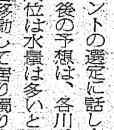 ントの選定に話し
後の予想は、各川
位は水量は多いと
移動して居り濁り